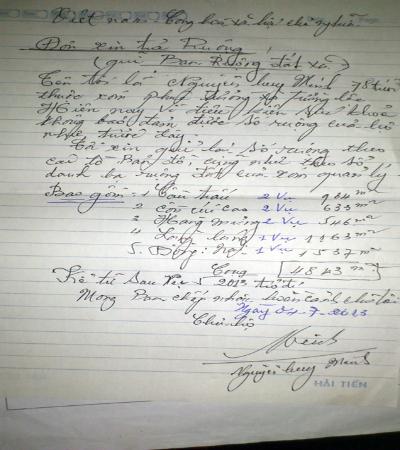 Việt nam Cộng hòa xã hội chủ nghĩa
Đơn xin trả Ruộng
(gửi Ban Ruộng đất xã)
Tên tôi là Nguyễn huy Minh 78 tuổi
thuộc xóm
Hiện nay vì tiên sức khoẻ
không bảo đảm được số ruộng của
như trước đây.
Tôi xin gửi lại số ruộng theo
như theo sổ
danh bạ ruộng đất của xóm quản lý
Bao gồm: 1 Cầu 2 Vụ m²
2 2 Vụ 633 m²
3 Hang 2 Vụ 546 m²
4 Lang 1 Vụ 1163 m²
5. Đồng 1 Vụ 1537 m²
Cộng 4843 m²
Kể từ sau Vụ 5 2013 trở đi
Mong Ban chấp nhận hoàn cảnh cho tôi
Ngày 04-7-2013
Chủ hộ
Minh
Nguyễn huy Minh
HẢI TIẾN